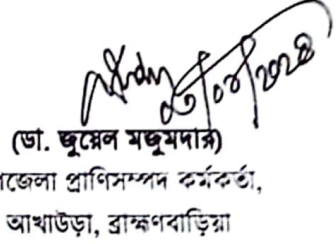 (ডা. জুয়েল মজুমদার)
জেলা প্রাণিসম্পদ কর্মকর্তা,
আখাউড়া, ব্রাহ্মণবাড়িয়া